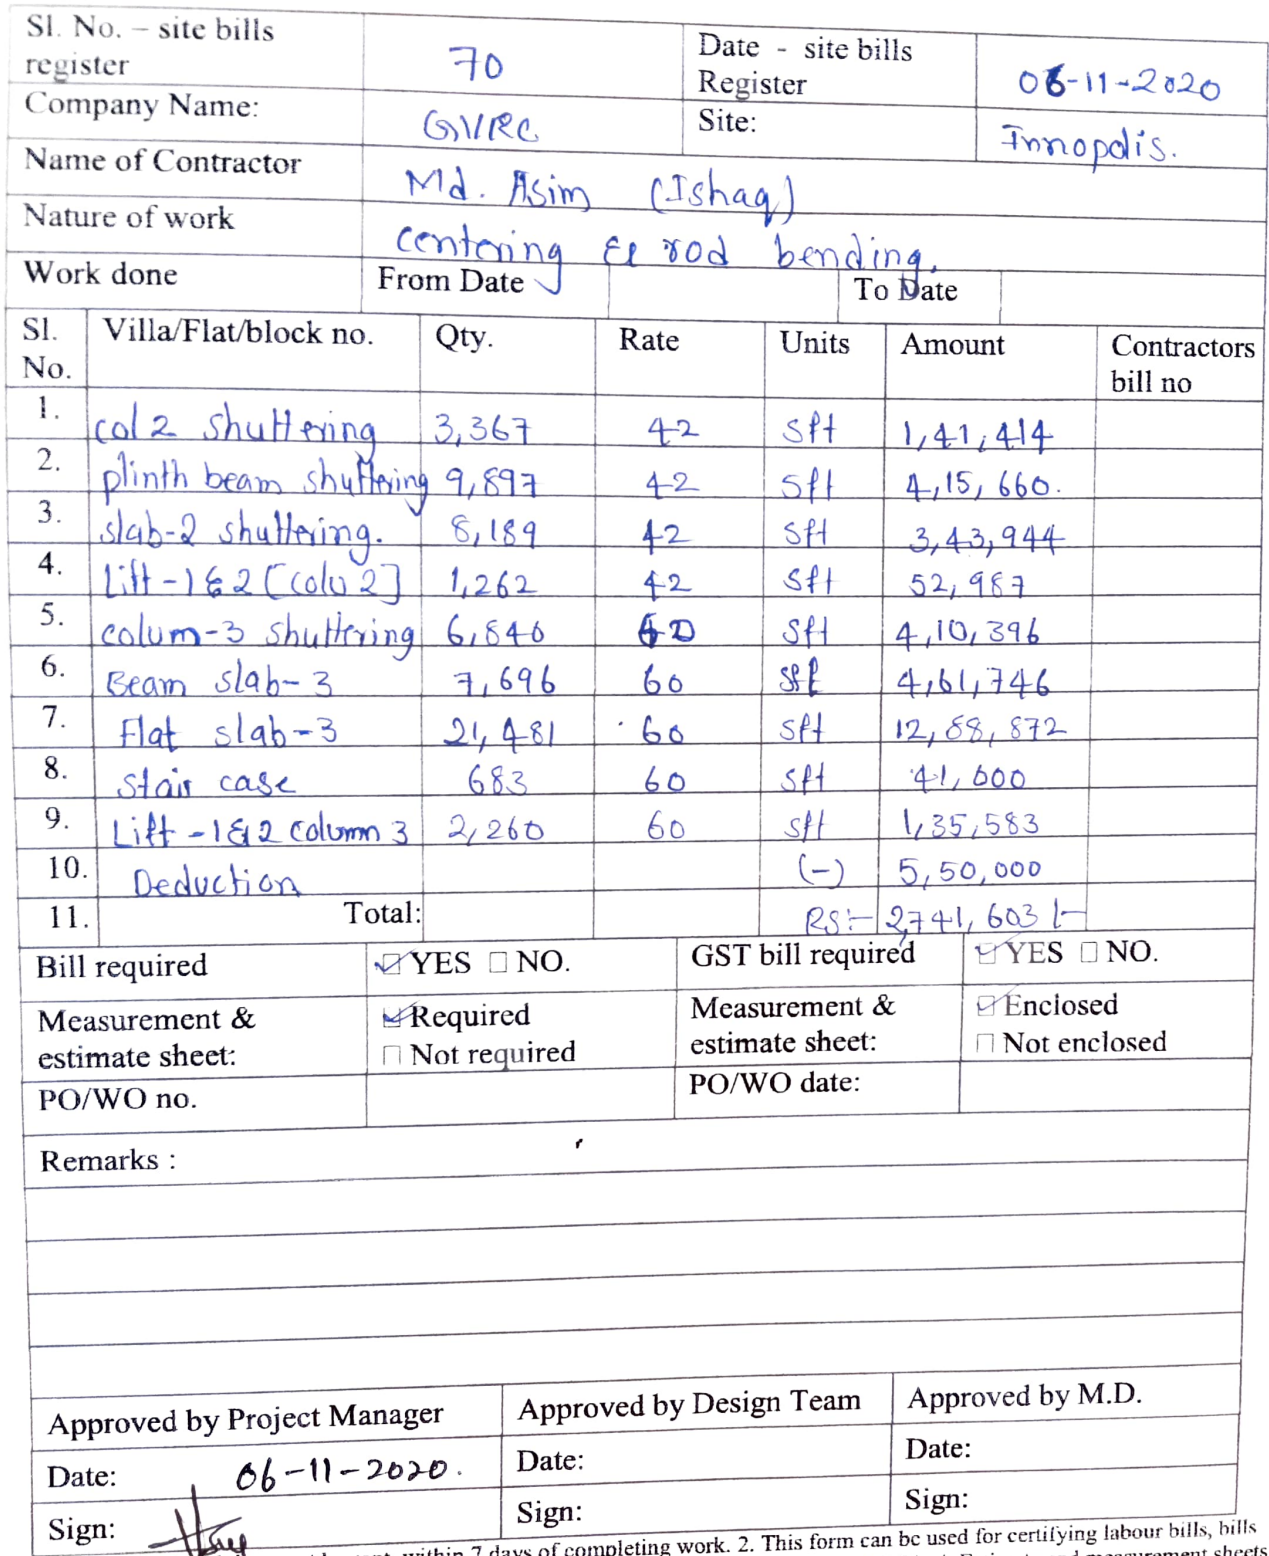 Sl. No. – site bills register 70 Date - site bills Register 06-11-2020
Company Name: GVRC Site: Innopolis.
Name of Contractor Md. Asim (Ishaq)
Nature of work centering & rod bending.
Work done From Date To Date
Sl. No. Villa/Flat/block no. Qty. Rate Units Amount Contractors bill no
1. col 2 shuttering 3,367 42 sft 1,41,414
2. plinth beam shuttering 9,897 42 sft 4,15,660.
3. slab-2 shuttering. 8,189 42 sft 3,43,944
4. Lift-1&2 [colu 2] 1,262 42 sft 52,987
5. colum-3 shuttering 6,840 60 sft 4,10,396
6. Beam slab-3 7,696 60 sft 4,61,746
7. Flat slab-3 21,481 60 sft 12,88,872
8. stair case 683 60 sft 41,000
9. Lift-1&2 column 3 2,260 60 sft 1,35,583
10. Deduction (-) 5,50,000
11. Total: RS:- 2,741,603/-
Bill required YES NO. GST bill required YES NO.
Measurement & estimate sheet: Required Not required Measurement & estimate sheet: Enclosed Not enclosed
PO/WO no. PO/WO date:
Remarks :
Approved by Project Manager Approved by Design Team Approved by M.D.
Date: 06-11-2020. Date: Date:
Sign: Sign: Sign:
within 7 days of completing work. 2. This form can be used for certifying labour bills, bills
measurement sheets